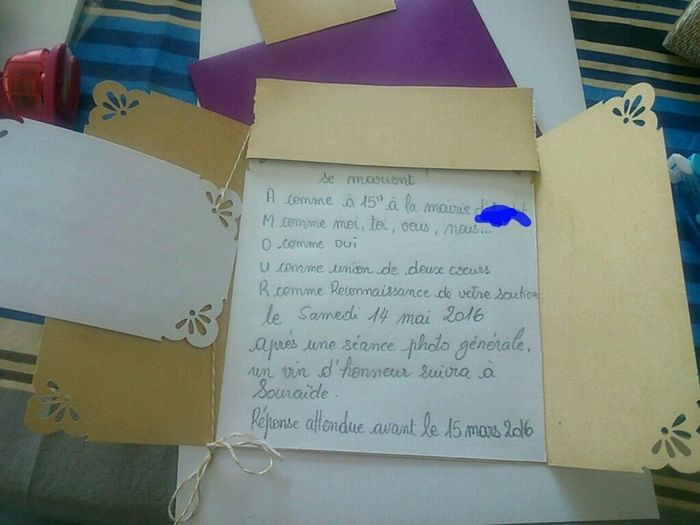 se marient !
A comme à 15H à la mairie
M comme moi, toi, vous, nous...
O comme oui
U comme union de deux coeurs
R comme Reconnaissance de votre soutien
le Samedi 14 mai 2016
après une séance photo générale,
un vin d'honneur suivra à
Souraïde.
Réponse attendue avant le 15 mars 2016